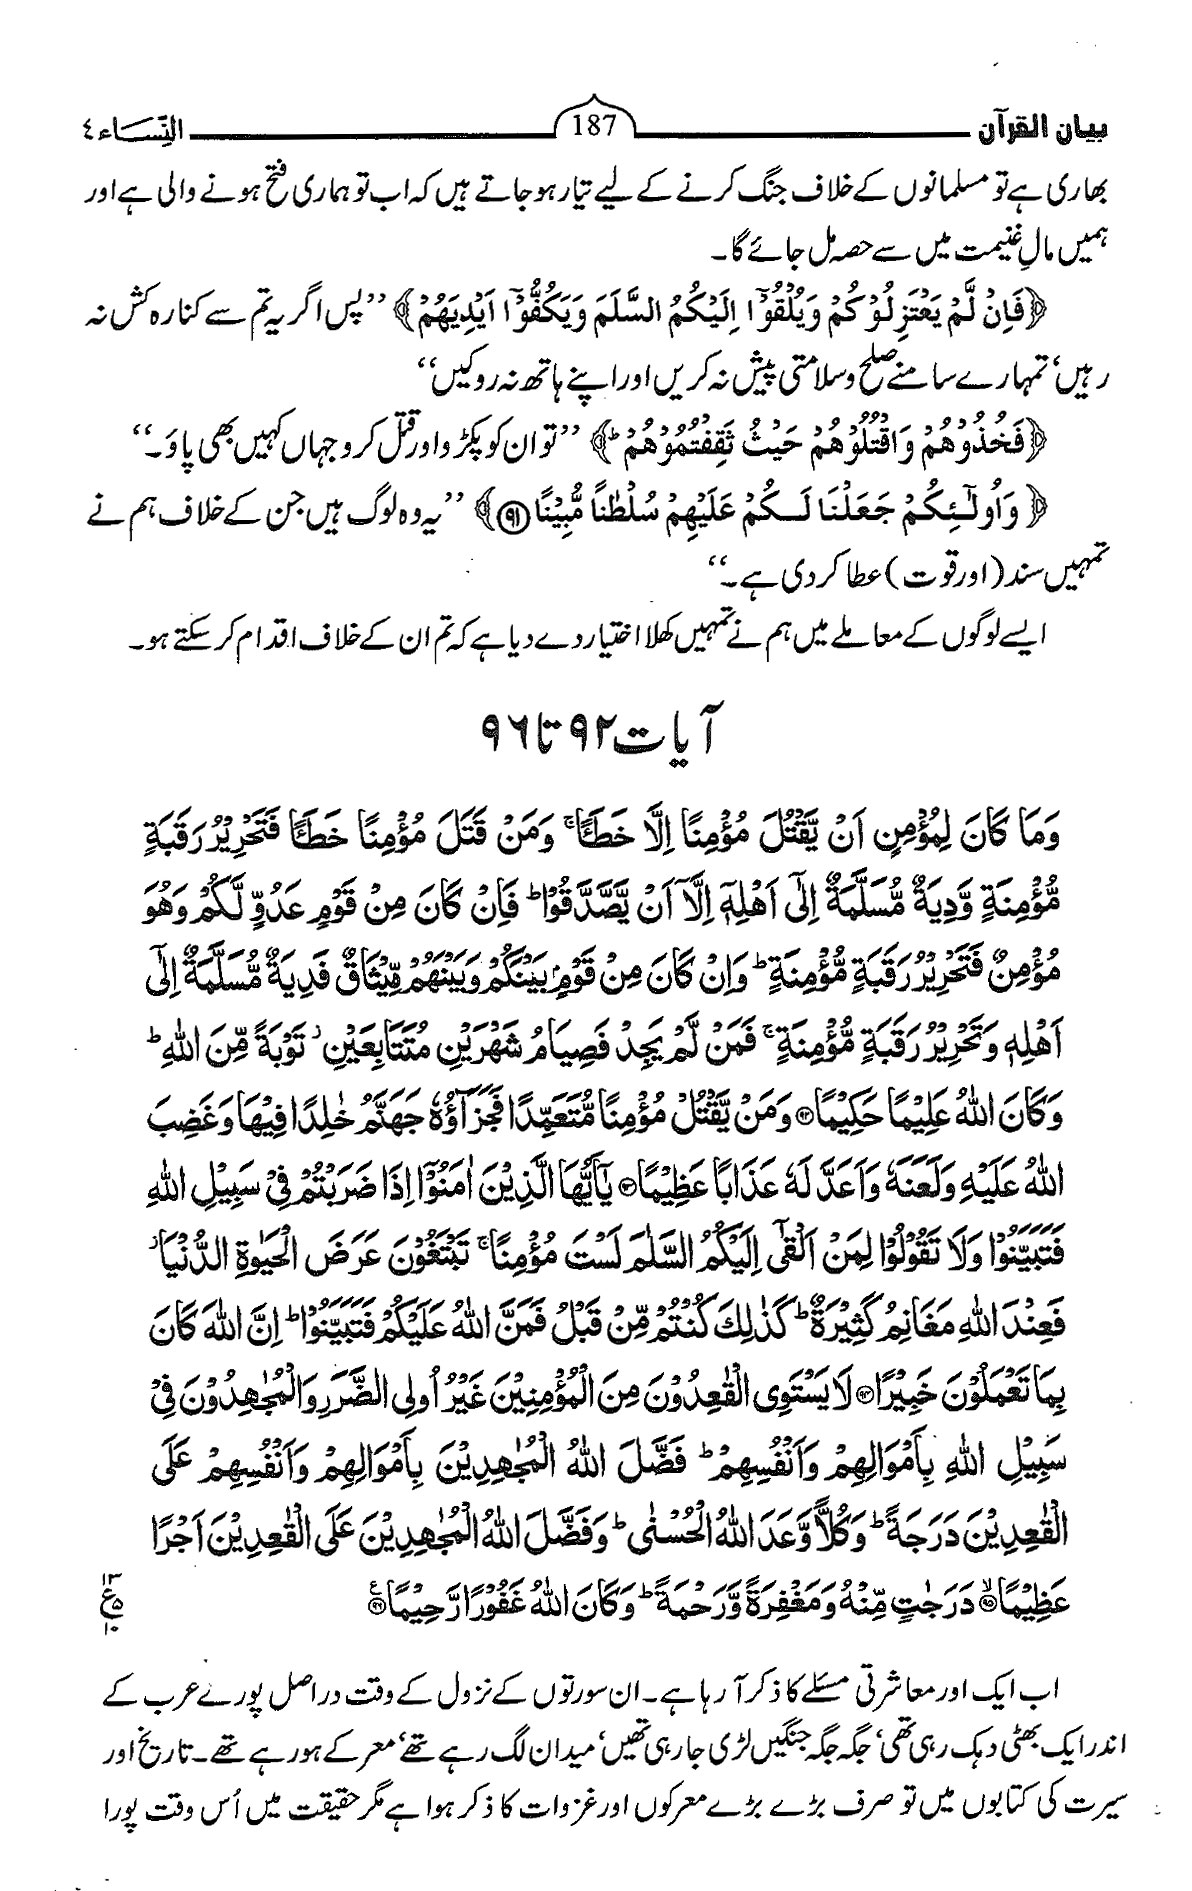 بیان القرآن 187 النِّسَاء ٤
بھاری ہے تو مسلمانوں کے خلاف جنگ کرنے کے لیے تیار ہو جاتے ہیں کہ اب تو ہماری فتح ہونے والی ہے اور
ہمیں مالِ غنیمت میں سے حصہ مل جائے گا۔
﴿فَاِنْ لَّمْ یَعْتَزِلُوْکُمْ وَیُلْقُوْٓا اِلَیْکُمُ السَّلَمَ وَیَکُفُّوْٓا اَیْدِیَهُمْ﴾ ’’پس اگر یہ تم سے کنارہ کش نہ
رہیں‘ تمہارے سامنے صلح و سلامتی پیش نہ کریں اور اپنے ہاتھ نہ روکیں‘‘
﴿فَخُذُوْهُمْ وَاقْتُلُوْهُمْ حَیْثُ ثَقِفْتُمُوْهُمْ ؕ﴾ ’’تو ان کو پکڑو اور قتل کرو جہاں کہیں بھی پاؤ۔‘‘
﴿وَاُولٰٓـئِکُمْ جَعَلْنَا لَـکُمْ عَلَیْهِمْ سُلْطٰنًا مُّبِیْنًا ﴿۹۱﴾﴾ ’’یہ وہ لوگ ہیں جن کے خلاف ہم نے
تمہیں سند (اور قوت) عطا کر دی ہے۔‘‘
ایسے لوگوں کے معاملے میں ہم نے تمہیں کھلا اختیار دے دیا ہے کہ تم ان کے خلاف اقدام کر سکتے ہو۔
آیات ۹۲ تا ۹۶
وَمَا کَانَ لِمُؤْمِنٍ اَنْ یَّقْتُلَ مُؤْمِنًا اِلَّا خَطَـًٔا ۚ وَمَنْ قَتَلَ مُؤْمِنًا خَطَـًٔا فَتَحْرِیْرُ رَقَبَةٍ
مُّؤْمِنَةٍ وَّدِیَةٌ مُّسَلَّمَةٌ اِلٰٓی اَهْلِهٖٓ اِلَّآ اَنْ یَّصَّدَّقُوْا ؕ فَاِنْ کَانَ مِنْ قَوْمٍ عَدُوٍّ لَّکُمْ وَهُوَ
مُؤْمِنٌ فَتَحْرِیْرُ رَقَبَةٍ مُّؤْمِنَةٍ ؕ وَاِنْ کَانَ مِنْ قَوْمٍۭ بَیْنَکُمْ وَبَیْنَهُمْ مِّیْثَاقٌ فَدِیَةٌ مُّسَلَّمَةٌ اِلٰٓی
اَهْلِهٖ وَتَحْرِیْرُ رَقَبَةٍ مُّؤْمِنَةٍ ۚ فَمَنْ لَّمْ یَجِدْ فَصِیَامُ شَهْرَیْنِ مُتَتَابِعَیْنِ ؗ تَوْبَةً مِّنَ اللّٰهِ ؕ
وَکَانَ اللّٰهُ عَلِیْمًا حَکِیْمًا ﴿۹۲﴾ وَمَنْ یَّقْتُلْ مُؤْمِنًا مُّتَعَمِّدًا فَجَزَآؤُهٗ جَهَنَّمُ خٰلِدًا فِیْهَا وَغَضِبَ
اللّٰهُ عَلَیْهِ وَلَعَنَهٗ وَاَعَدَّ لَهٗ عَذَابًا عَظِیْمًا ﴿۹۳﴾ یٰٓاَیُّهَا الَّذِیْنَ اٰمَنُوْٓا اِذَا ضَرَبْتُمْ فِیْ سَبِیْلِ اللّٰهِ
فَتَبَیَّنُوْا وَلَا تَقُوْلُوْا لِمَنْ اَلْقٰٓی اِلَیْکُمُ السَّلٰمَ لَسْتَ مُؤْمِنًا ۚ تَبْتَغُوْنَ عَرَضَ الْحَیٰوةِ الدُّنْیَا ؗ
فَعِنْدَ اللّٰهِ مَغَانِمُ کَثِیْرَةٌ ؕ کَذٰلِکَ کُنْتُمْ مِّنْ قَبْلُ فَمَنَّ اللّٰهُ عَلَیْکُمْ فَتَبَیَّنُوْا ؕ اِنَّ اللّٰهَ کَانَ
بِمَا تَعْمَلُوْنَ خَبِیْرًا ﴿۹۴﴾ لَا یَسْتَوِی الْقٰعِدُوْنَ مِنَ الْمُؤْمِنِیْنَ غَیْرُ اُولِی الضَّرَرِ وَالْمُجٰهِدُوْنَ فِیْ
سَبِیْلِ اللّٰهِ بِاَمْوَالِهِمْ وَاَنْفُسِهِمْ ؕ فَضَّلَ اللّٰهُ الْمُجٰهِدِیْنَ بِاَمْوَالِهِمْ وَاَنْفُسِهِمْ عَلَی
الْقٰعِدِیْنَ دَرَجَةً ؕ وَکُلًّا وَّعَدَ اللّٰهُ الْحُسْنٰی ؕ وَفَضَّلَ اللّٰهُ الْمُجٰهِدِیْنَ عَلَی الْقٰعِدِیْنَ اَجْرًا
عَظِیْمًا ﴿۹۵﴾ۙ دَرَجٰتٍ مِّنْهُ وَمَغْفِرَةً وَّرَحْمَةً ؕ وَکَانَ اللّٰهُ غَفُوْرًا رَّحِیْمًا ﴿۹۶﴾
۱۳
ع ۵
۱۰
اب ایک اور معاشرتی مسئلے کا ذکر آ رہا ہے۔ ان سورتوں کے نزول کے وقت دراصل پورے عرب کے
اندر ایک بھٹی دہک رہی تھی‘ جگہ جگہ جنگیں لڑی جا رہی تھیں‘ میدان لگ رہے تھے‘ معرکے ہو رہے تھے۔ تاریخ اور
سیرت کی کتابوں میں تو صرف بڑے بڑے معرکوں اور غزوات کا ذکر ہوا ہے مگر حقیقت میں اُس وقت پورا